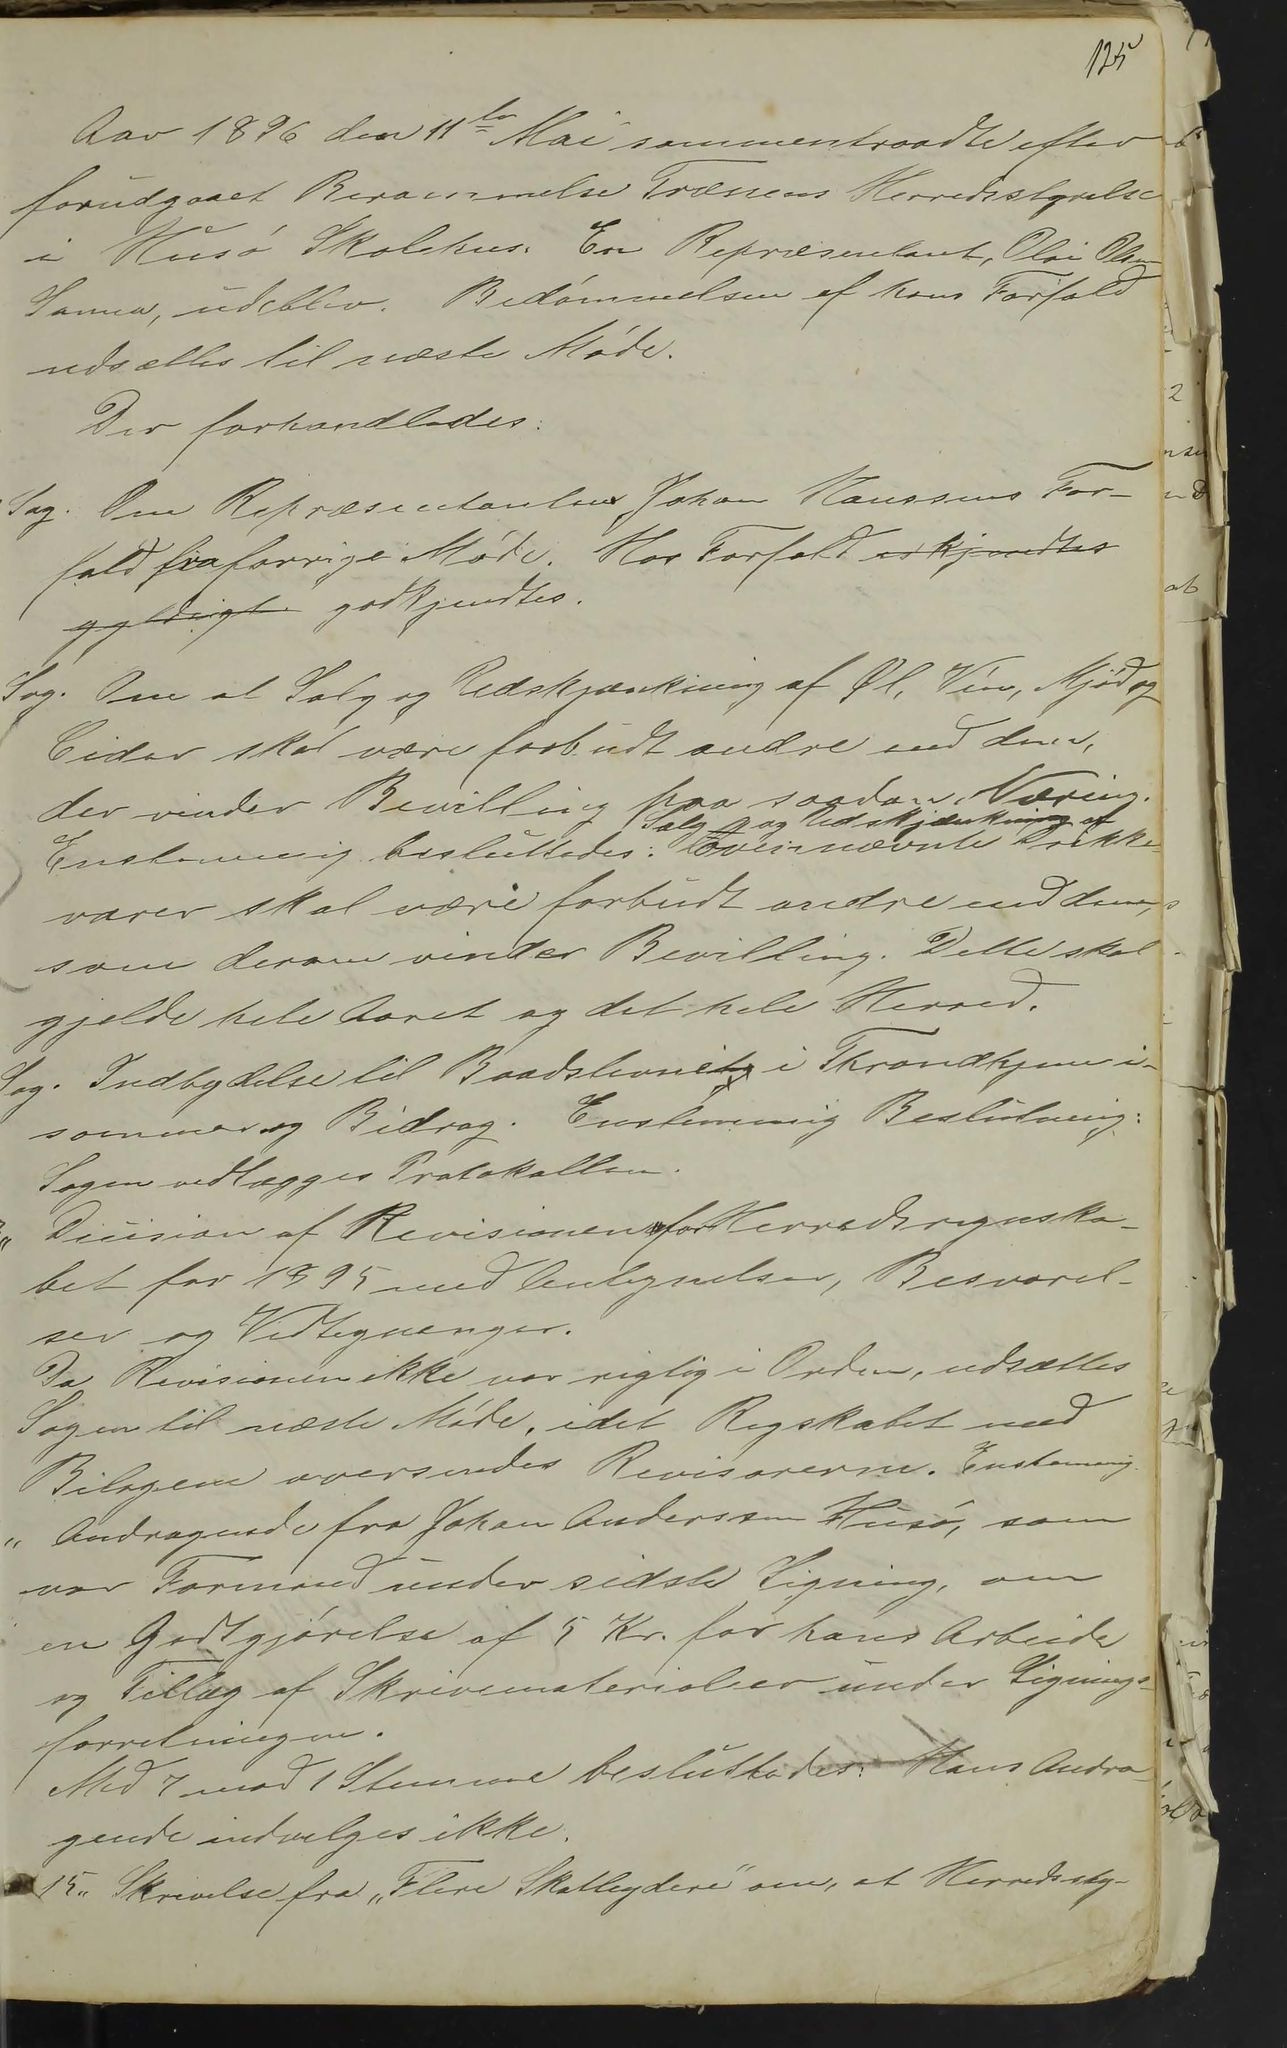 125
Aar 1896 den 11te Mai sammentraadte efter
forudgaaet Berammelse Trænens Herredsstyrelse
i Husø Skolehus. En Repræsentant, Oloi Olsen
Sanna, udeblev. Bedømmelsen af hans Forfald
udsættes til næste Møde.
Der forhandledes:
Sag. Om Repræsentanten Johan Hanssens For-
fald fra forrige Møde. Hos Forfald erkjendtes
gyldigt godkjendtes.
Sag. Om at Salg og Udskjænkning af Øl, Vin, Mjød og
Cider skal være forbudt andre end dem,
der vinder Bevilling paa saadan Næring.
Salg og Udskjænkning af
Enstemmig besluttedes: Ovennævnte Drikke-
varer skal være forbudt andre end dem,
som derom vinder Bevilling. Dette skal
gjelde hele Aaret og det hele Herred.
Sag. Indbydelse til Baadstevne i Throndhjem i
sommer og Bidrag. Enstemmig Beslutning:
Sagen vedlægges Protokollen.
" Dicision af Revisionen for Herredsregnska-
bet for 1895 med Antegnelser, Besvarel-
ser og Vedtegnenger.
Da Revisionen ikke var rigtig i Orden, udsættes
Sagen til næste Møde, idet Regskabet med
Bilagene oversendes Revisorerne. Enstemmig.
" Andragende fra Johan Anderssen Husø, som
var Formand under sidste Ligning, om
en Godtgjørelse af 5 Kr. for hans Arbeide
og Tillæg af Skrivematerialier under Lignings-
forretningen.
Med 7 mod 1 Stemme besluttedes: Hans Andra-
gende indvelges ikke.
15. " Skrivelse fra „Flere Skatteydere" om, at Herredssty-